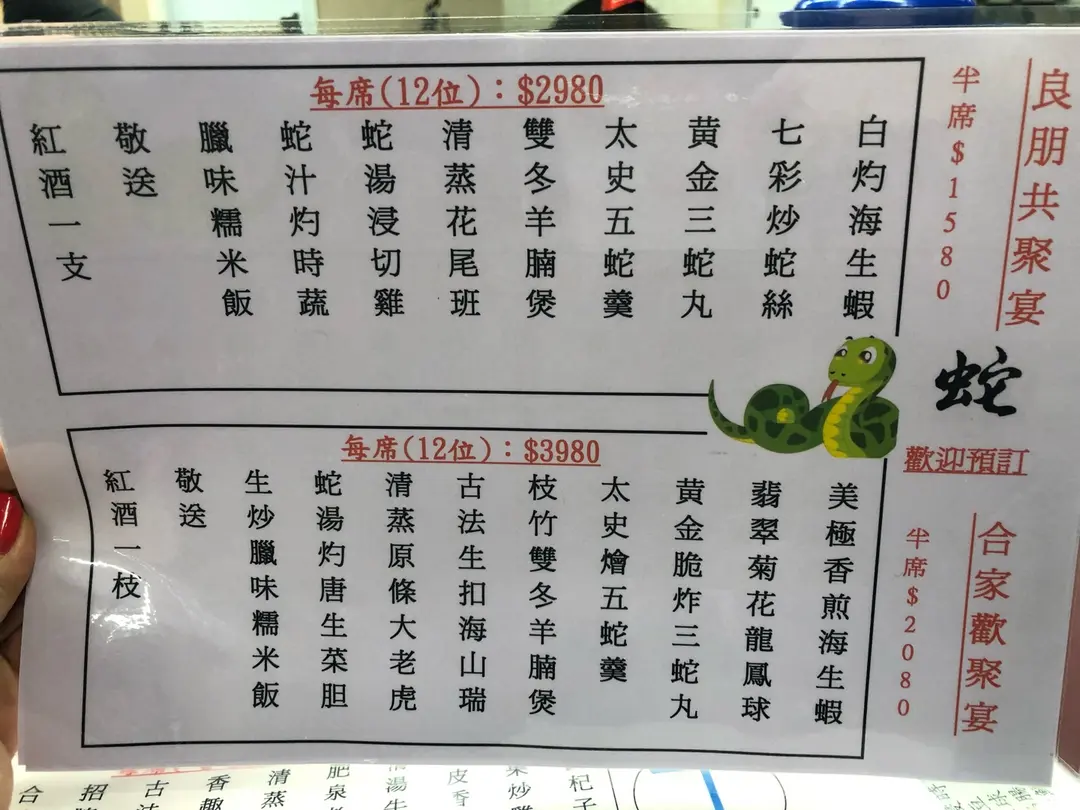 良朋共聚宴
半席$1580
每席(12位)：$2980
白灼海生蝦
七彩炒蛇絲
黄金三蛇丸
太史五蛇羹
雙冬羊腩煲
清蒸花尾班
蛇湯浸切雞
蛇汁灼時蔬
臘味糯米飯
敬送
紅酒一支
蛇
歡迎預訂
合家歡聚宴
半席$2080
每席(12位)：$3980
美極香煎海生蝦
翡翠菊花龍鳳球
黄金脆炸三蛇丸
太史燴五蛇羹
枝竹雙冬羊腩煲
古法生扣海山瑞
清蒸原條大老虎
蛇湯灼唐生菜胆
生炒臘味糯米飯
敬送
紅酒一枝
杞子
炒
皮香
湯生
肥泉
清蒸
香趣
古法
招
合